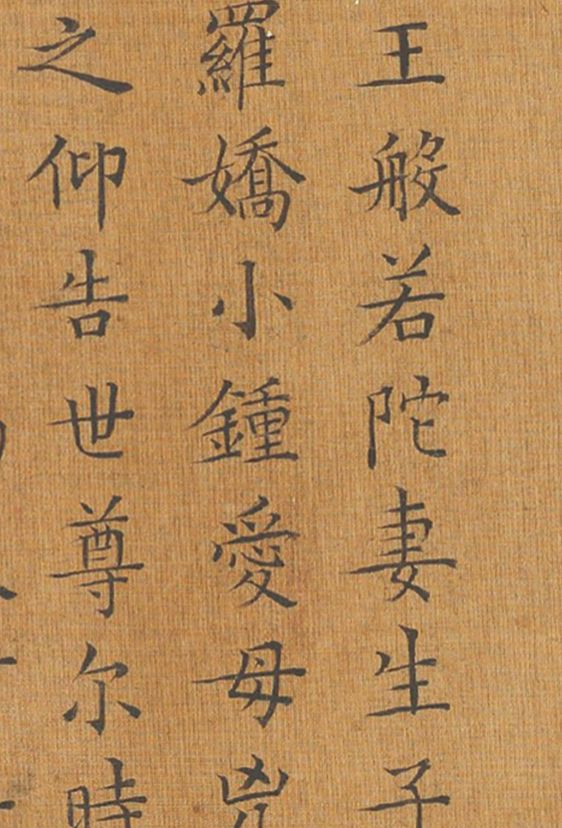 王般若陀妻生子
羅嬌小鍾愛母兇
之仰告世尊尔時